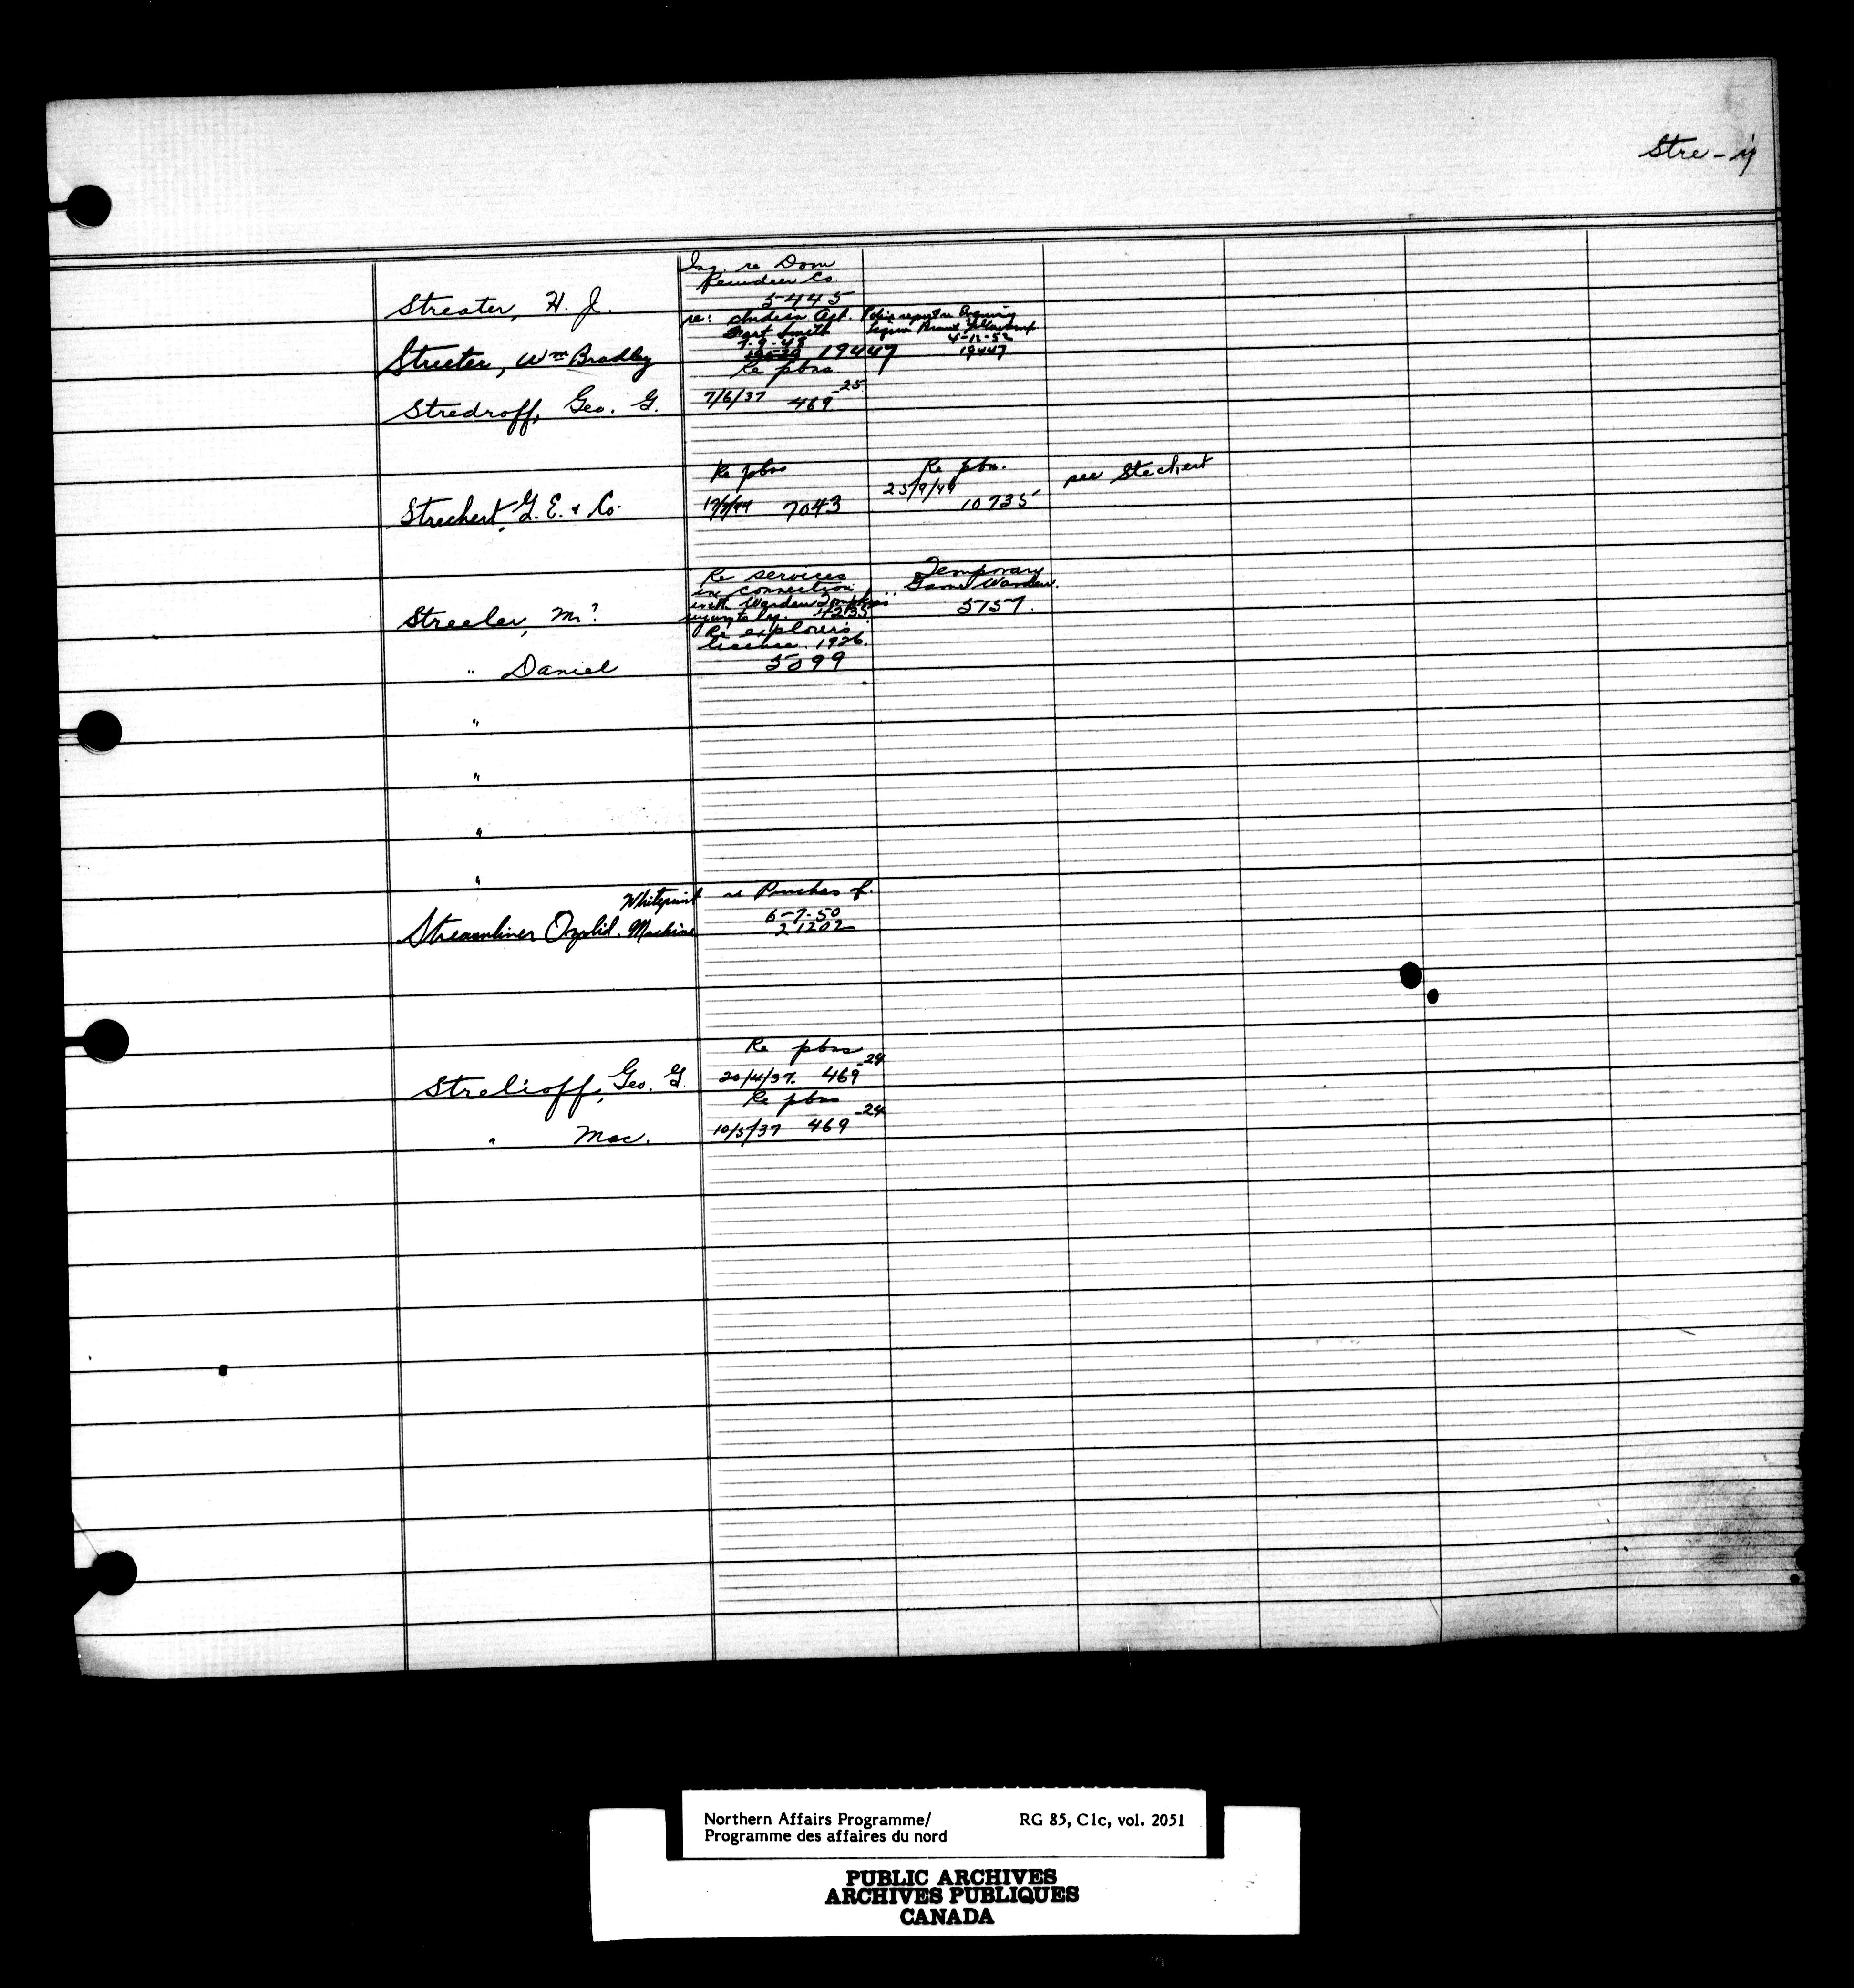 Stre-y
Inq. re Dom
Reindeer Co.
Streater, H. J.
5445
re: Indian Agt.
Fort Smith
7-9-48
Police report re Enquiry
Liquor Permit Yellowknife
4-12-52
Streeter, Wm Bradley
19447
19447
Re pbns.
Stredroff, Geo. G.
7/6/37 469-25
Re pbns
Re pbn.
see Stechert
Strechert, G. E. & Co.
7043
25/9/44
10735
Re services
in connection
with Warden
Temporary
Game Warden.
Streeler, Mr?
5157.
Re explorers
licence. 1926.
" Daniel
5099
"
"
"
"
Whiteprint re Purchase of.
Streamliner Ozalid. Machine
6-7-50
21202
Re pbns
Strelioff, Geo. G.
20/4/37. 469-24
Re pbns
" Mac.
10/5/37 469-24
Northern Affairs Programme/ RG 85, C1c, vol. 2051
Programme des affaires du nord
PUBLIC ARCHIVES
ARCHIVES PUBLIQUES
CANADA